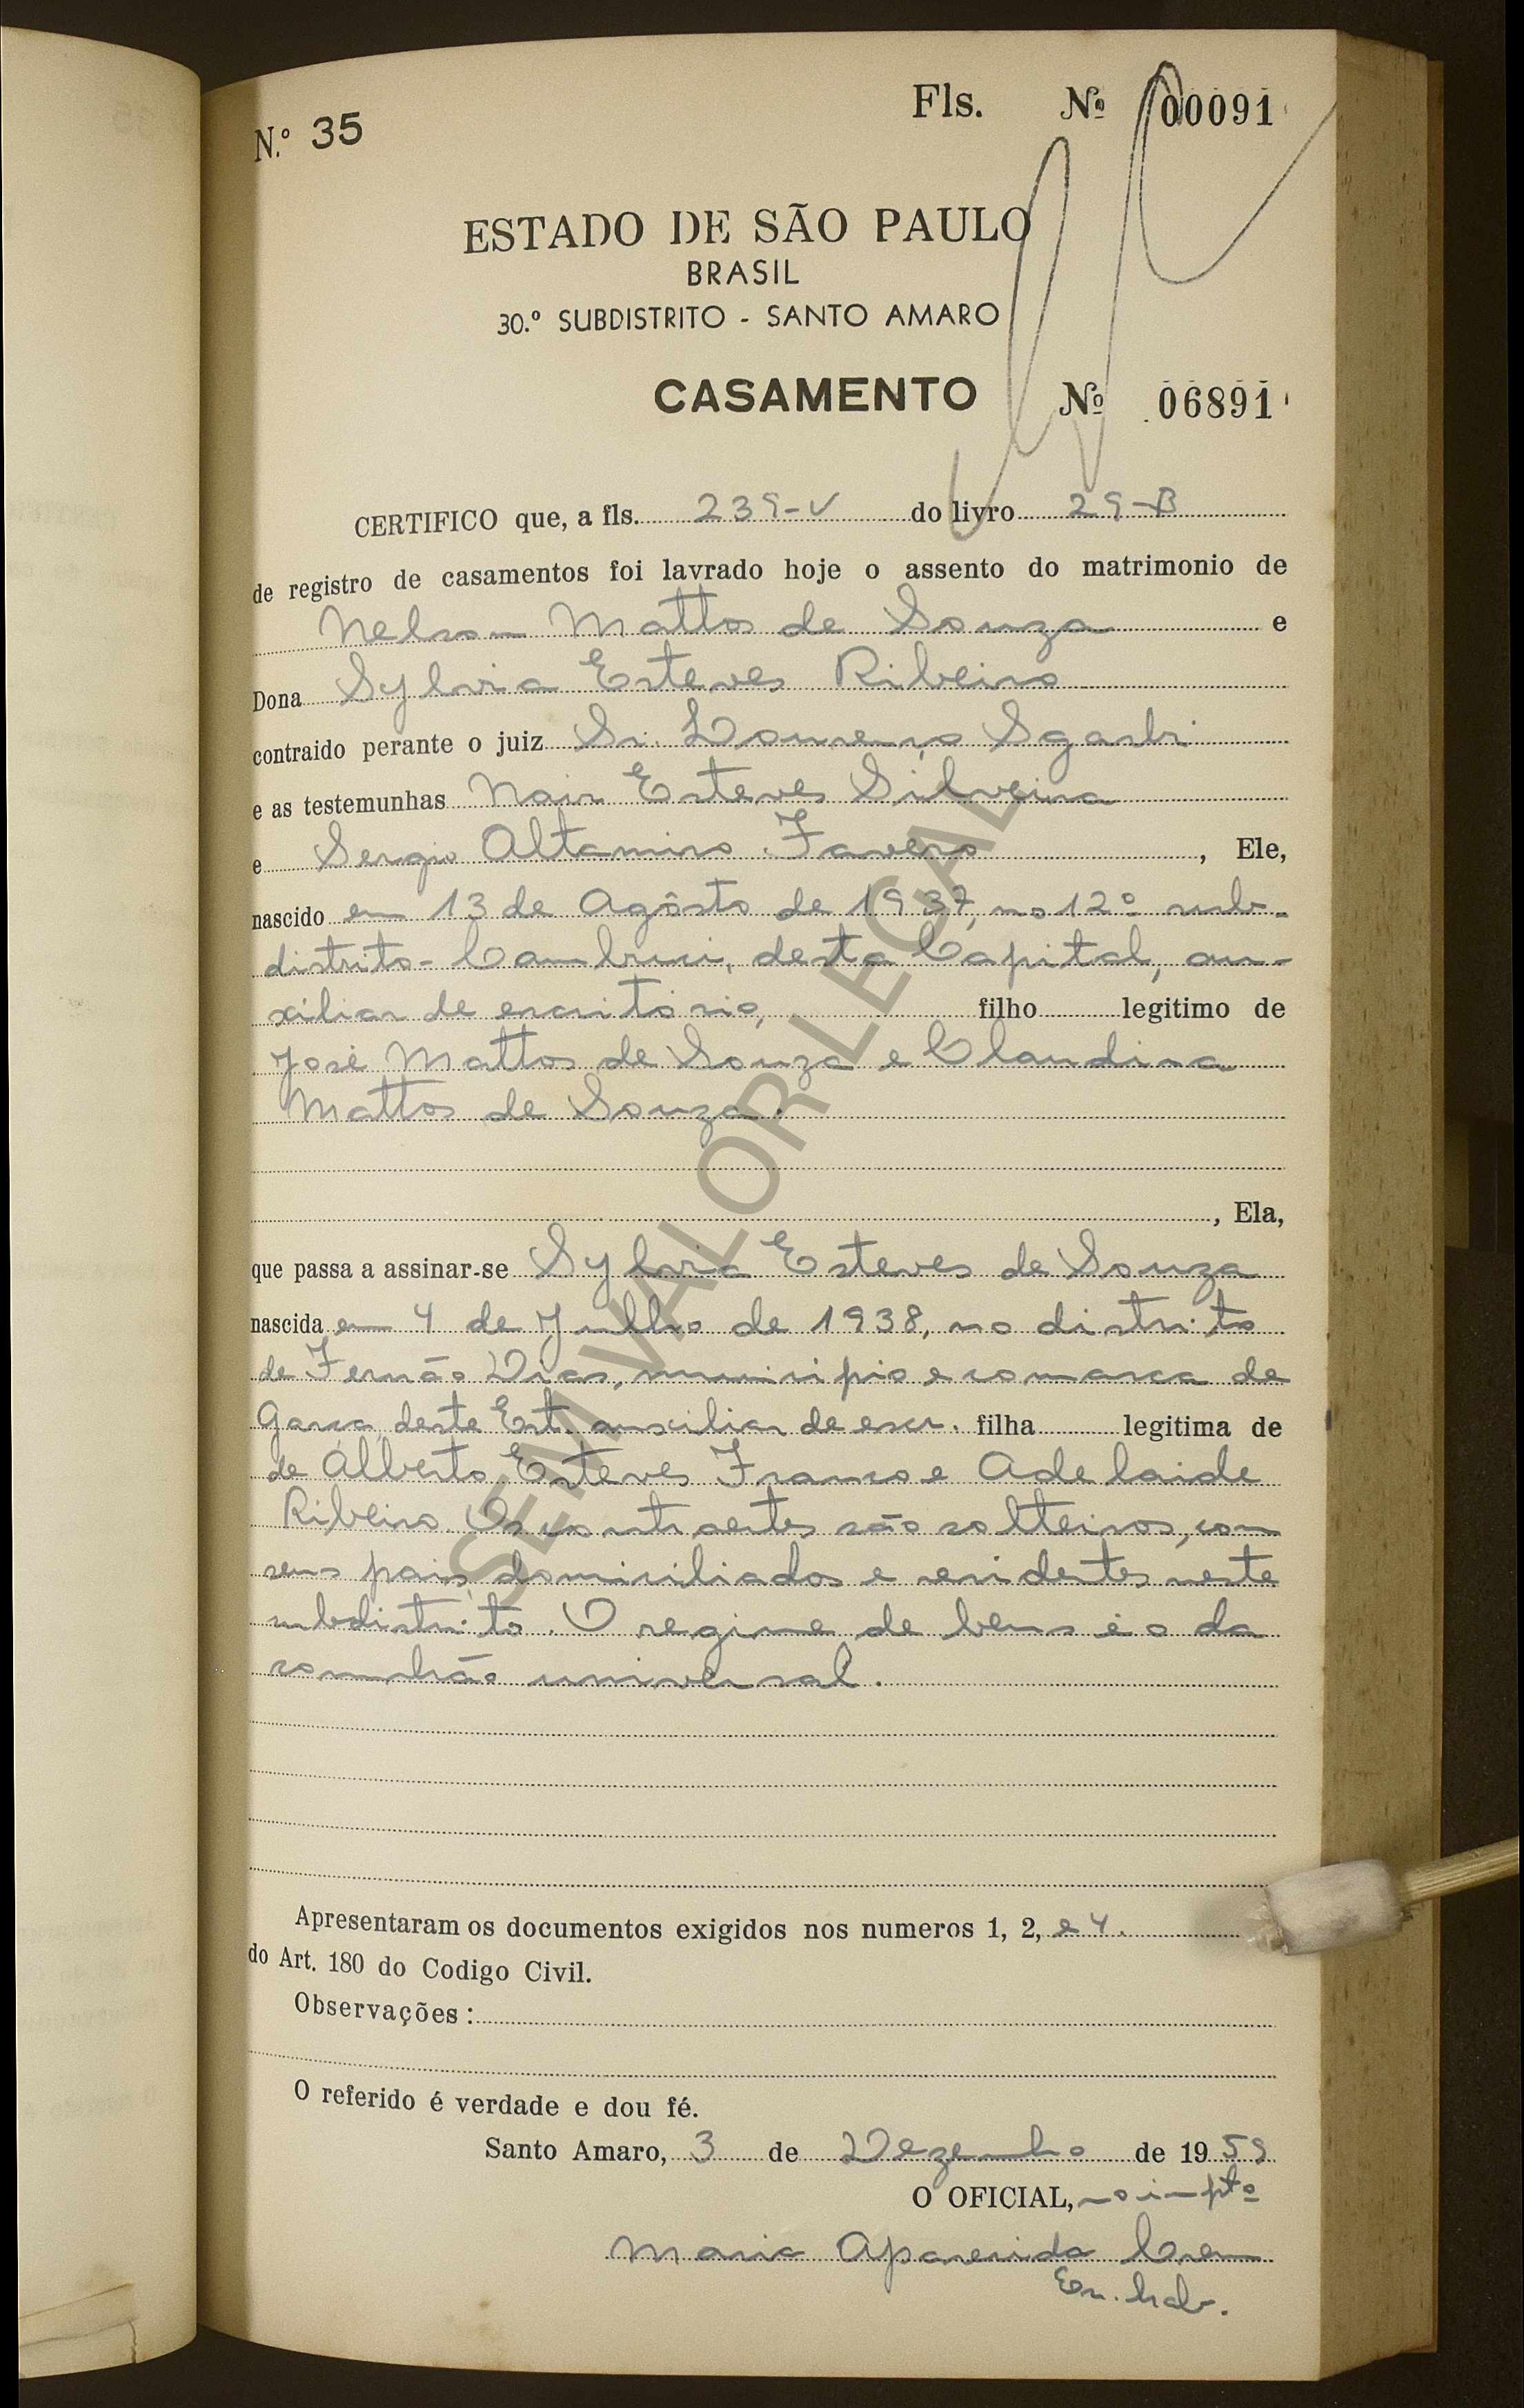 N.º 35
Fls. Nº 00091
ESTADO DE SÃO PAULO
BRASIL
30.º SUBDISTRITO - SANTO AMARO
CASAMENTO Nº 06891
CERTIFICO que, a fls. 239-V do livro 29-B
de registro de casamentos foi lavrado hoje o assento do matrimonio de
Nelson Mattos de Souza e
Dona Sylvia Esteves Ribeiro
contraido perante o juiz Sr. Lourenço Sgarbi
e as testemunhas Nair Esteves Silveira
e Sergio Altamiro Favero, Ele,
nascido em 13 de Agôsto de 1937, no 12º sub-
distrito - Cambuci, desta Capital, au-
xiliar de escritório, filho legitimo de
José Mattos de Souza e Claudina
Mattos de Souza.
, Ela,
que passa a assinar-se Sylvia Esteves de Souza
nascida em 4 de Julho de 1938, no distrito
de Fernão Dias, municipio e comarca de
Garça, deste Est. auxiliar de escr. filha legitima de
de Alberto Esteves Franco e Adelaide
Ribeiro. Os contraentes são solteiros, com
seus pais, domiciliados e residentes neste
subdistrito. O regime de bens é o da
comunhão universal.
Apresentaram os documentos exigidos nos numeros 1, 2, e 4.
do Art. 180 do Codigo Civil.
Observações:
O referido é verdade e dou fé.
Santo Amaro, 3 de Dezembro de 1959
O OFICIAL, no impto
Maria Aparecida
Esc. hab.
SEM VALOR LEGAL